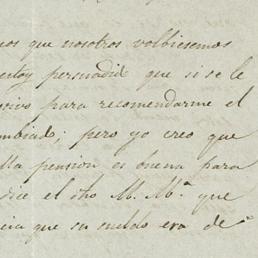 eos que nosotros volbiesemos
estoy persuadid que si se le
sivo para recomendarme el
mbiad; pero yo creo que
lla pension es buena para
dice el dho M. Mª. que
cia que su sueldo era de